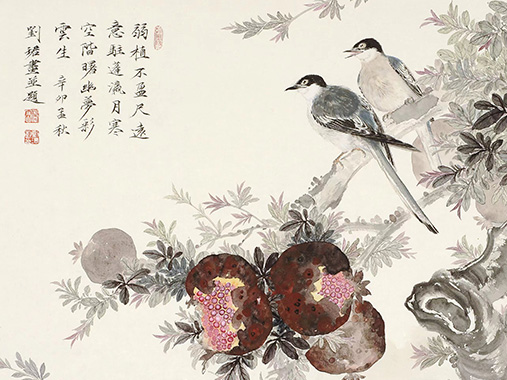 弱植不盈尺遠
意駐蓬瀛月寒
空階曙幽夢彩
雲生 辛卯孟秋
劉珺畫並題